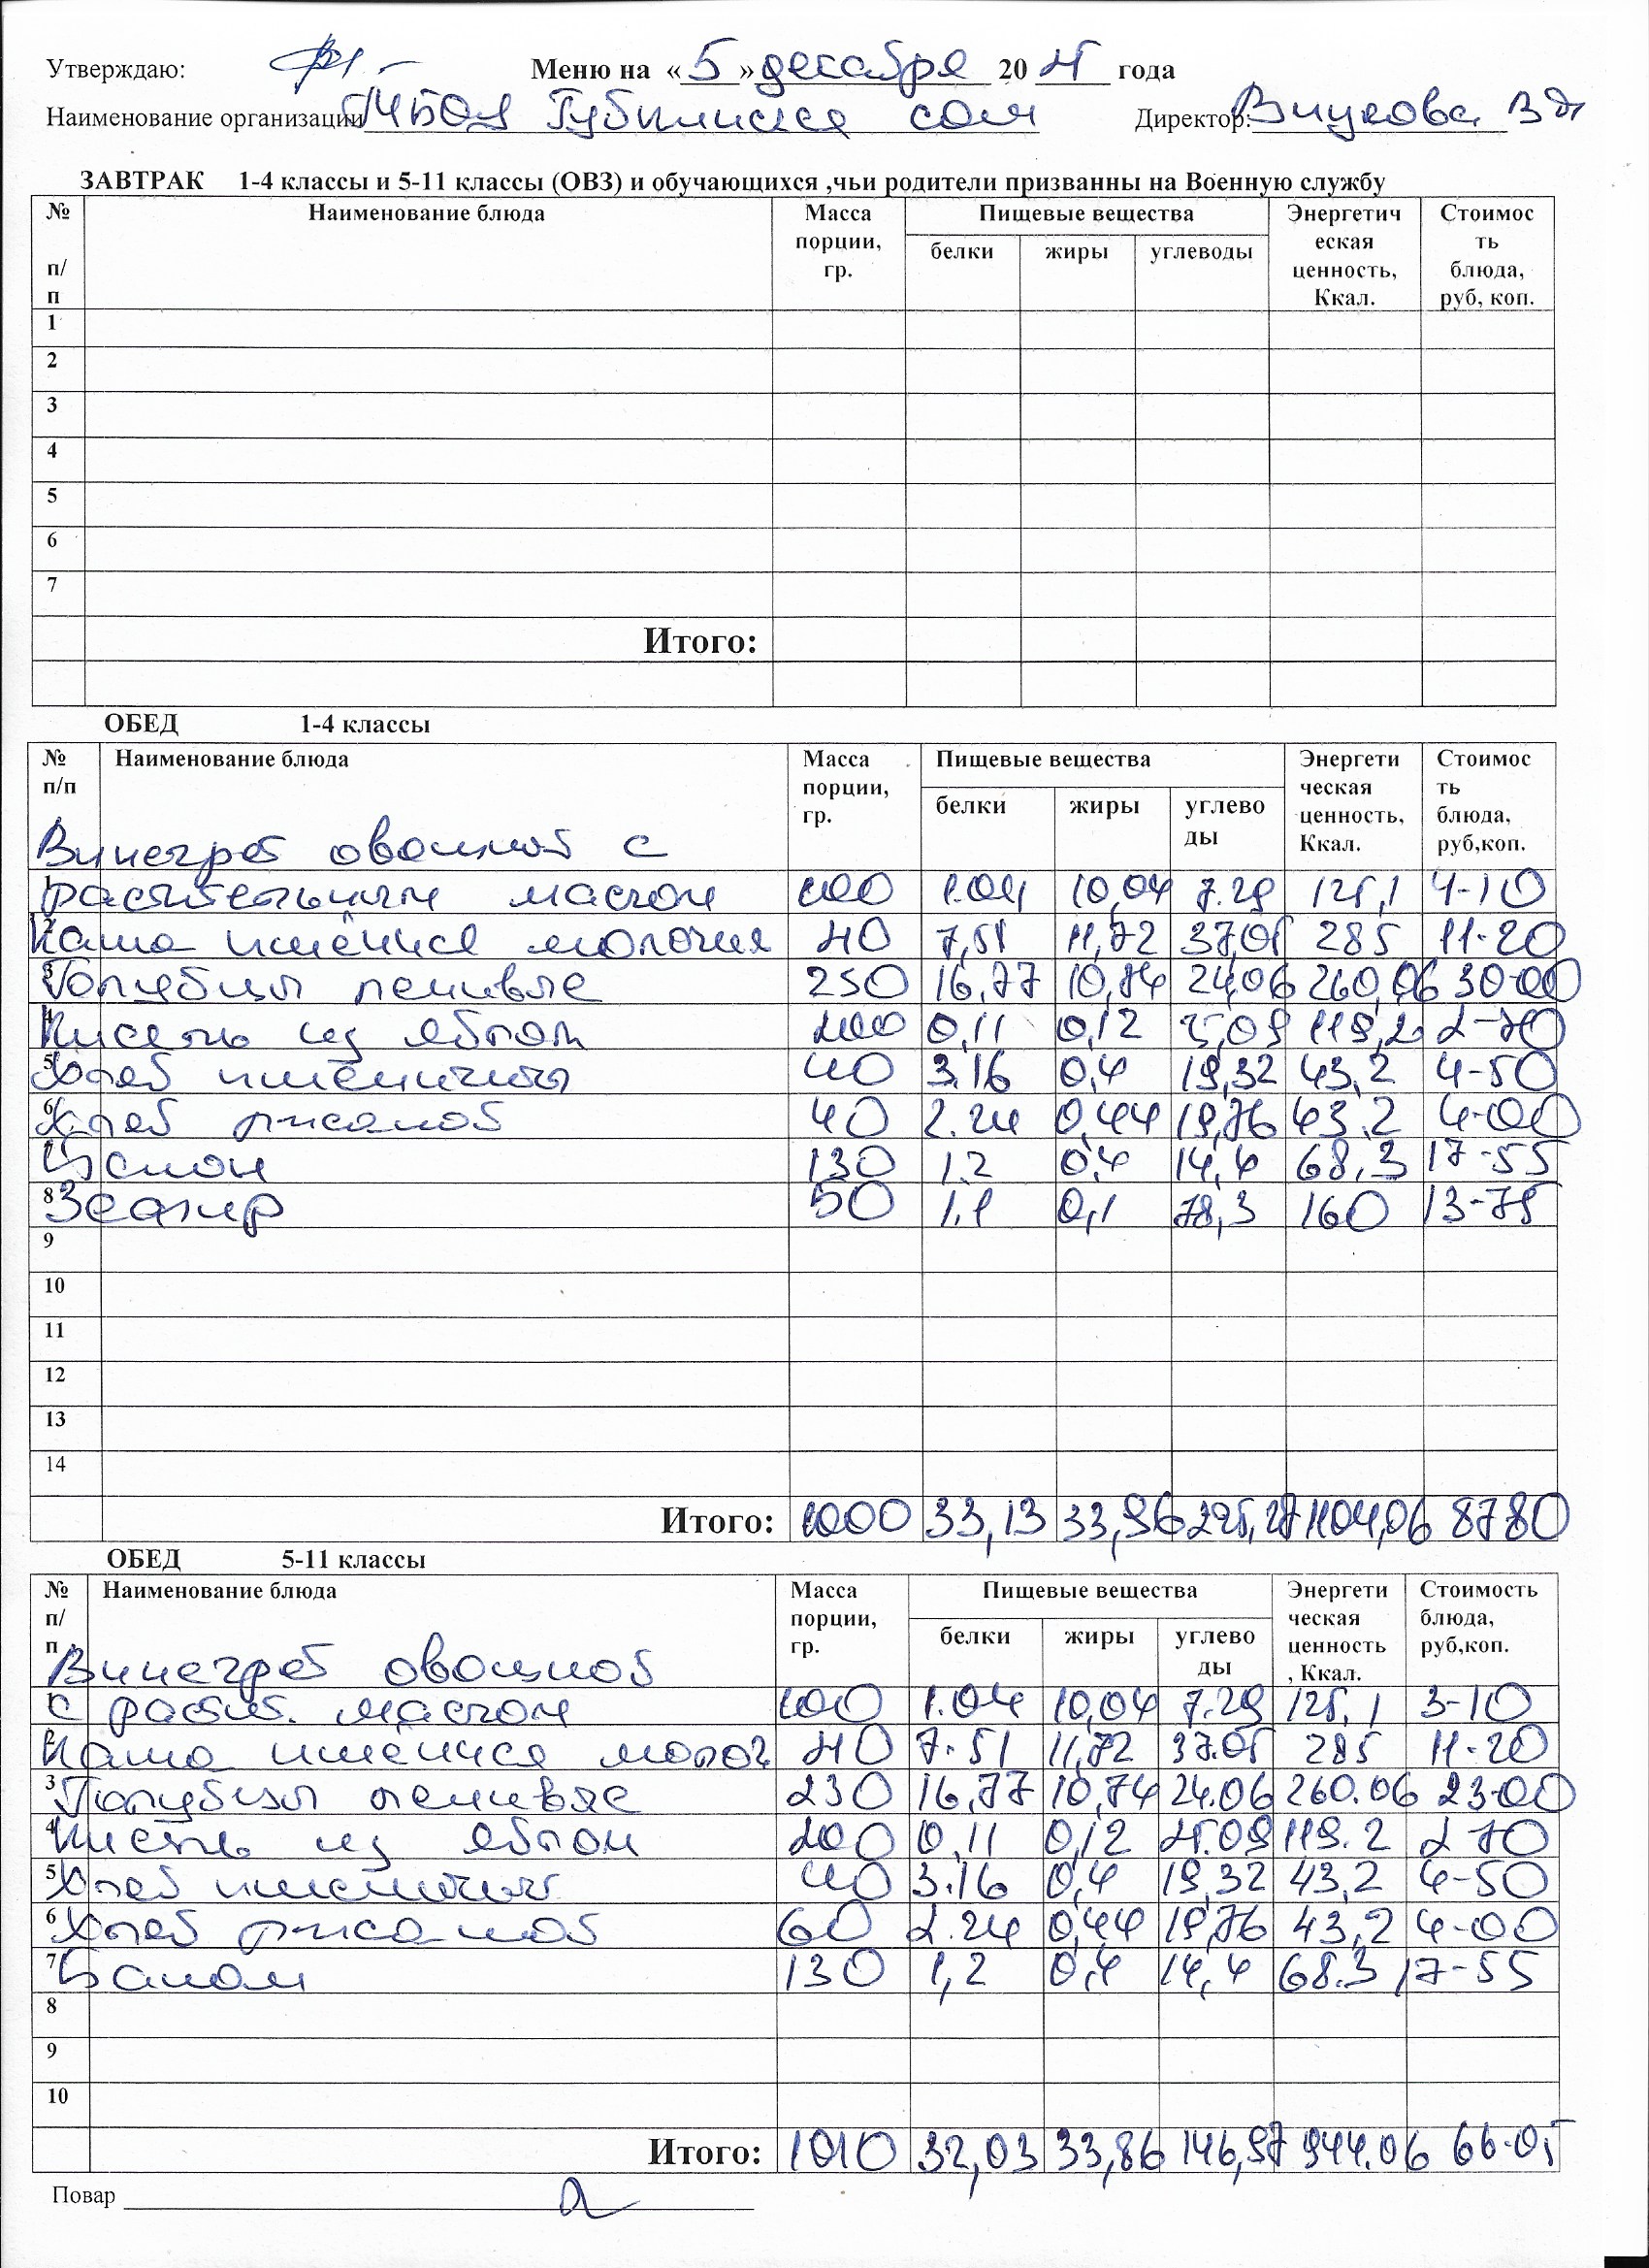 Утверждаю: Меню на «5» декабря 20 года
Наименование организации МБОУ сош Директор: Внукова
ЗАВТРАК 1-4 классы и 5-11 классы (ОВЗ) и обучающихся ,чьи родители призванны на Военную службу
№ п/п Наименование блюда Масса порции, гр. Пищевые вещества Энергетическая ценность, Ккал. Стоимость блюда, руб, коп.
белки жиры углеводы
1
2
3
4
5
6
7
Итого:
ОБЕД 1-4 классы
№ п/п Наименование блюда Масса порции, гр. Пищевые вещества Энергетическая ценность, Ккал. Стоимость блюда, руб,коп.
белки жиры углеводы
Винегрет овощной с
1 растительным маслом 100 1.04 10,04 7.29 125,1 4-10
2 Каша пшённая молочная 7,51 11,72 37,05 285 11-20
3 Голубцы ленивые 250 16,77 10,74 24,06 260,06 30-00
4 Кисель из яблок 200 0,11 0,12 119,2 2-70
5 Хлеб пшеничный 40 3.16 0,4 19,32 43,2 4-50
6 Хлеб ржаной 40 2.24 0,44 19,76 43.2 4-00
7 130 1.2 0,4 14,4 68,3 17-55
8 Зефир 50 1,1 0,1 78,3 160 13-75
9
10
11
12
13
14
Итого: 1000 33,13 33,96 225,27 1104,06 8780
ОБЕД 5-11 классы
№ п/п Наименование блюда Масса порции, гр. Пищевые вещества Энергетическая ценность, Ккал. Стоимость блюда, руб,коп.
белки жиры углеводы
Винегрет овощной
1 с растит. маслом 100 1.04 10,04 7.29 125,1 3-10
2 Каша пшённая молоч 7.51 11,72 37.05 285 11-20
3 Голубцы ленивые 230 16,77 10,74 24.06 260.06 23-00
4 Кисель из яблок 200 0,11 0,12 25.09 119.2 2 70
5 Хлеб пшеничный 40 3.16 0,4 19,32 43,2 4-50
6 Хлеб ржаной 60 2.24 0,44 19,76 43,2 4-00
7 130 1,2 0,4 14,4 68.3 17-55
8
9
10
Итого: 1010 32,03 33,86 146,97 944.06 66-05
Повар